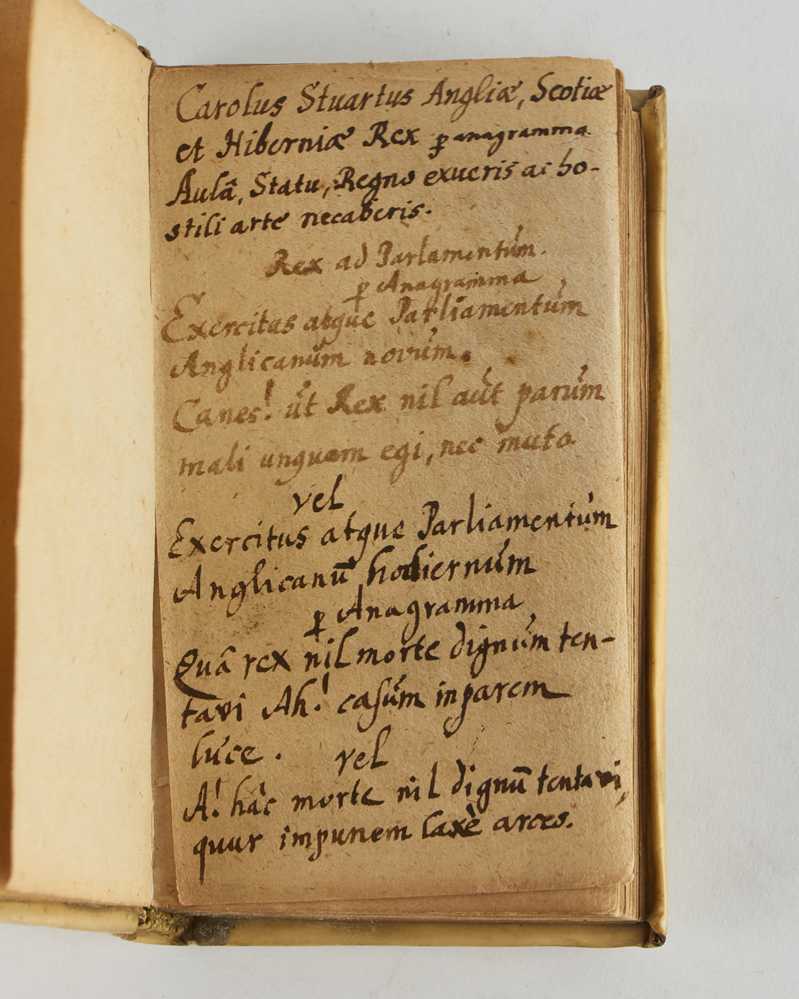 Carolus Stuartus Angliæ, Scotiæ
et Hiberniæ Rex ꝑ anagramma
Aulâ, Statu, Regno exueris ac ho-
stili arte necaberis.
Rex ad Parlamentúm.
ꝑ Anagramma
Exercitus atque Parliamentúm
Anglicanúm novúm.
Canes! út Rex nil aút parúm
mali unquam egi, nec muto
vel
Exercitus atque Parliamentúm
Anglicanū hodiernúm
ꝑ Anagramma
Quâ rex nil morte dignúm ten-
tavi Ah! casúm inparem
luce. vel
A! hâc morte nil dignū tentavi,
quur impunem laxè arces.